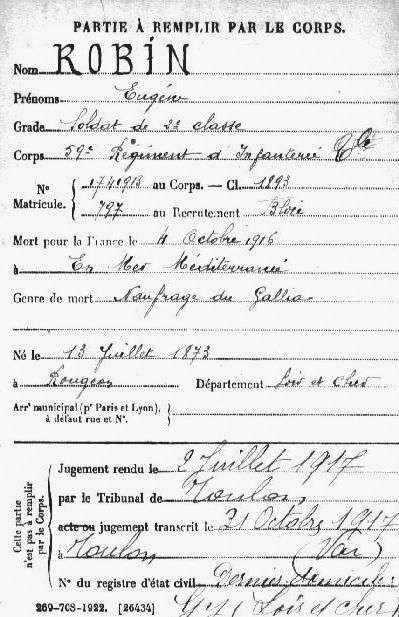 PARTIE À REMPLIR PAR LE CORPS.
Nom ROBIN
Prénoms Eugène
Grade Soldat de 2e classe
Corps 59e Régiment d'Infanterie Ctle
N° Matricule. 1741913 au Corps. — Cl. 1893
797 au Recrutement Blois
Mort pour la France le 4 Octobre 1916
à En Mer Méditerranée
Genre de mort Naufrage du Gallia
Né le 13 Juillet 1873
à Rougeou Département Loir et Cher
Arrt municipal (pr Paris et Lyon), à défaut rue et N°.
Cette partie n'est pas à remplir par le Corps.
Jugement rendu le 2 Juillet 1917
par le Tribunal de Toulon
acte ou jugement transcrit le 21 Octobre 1917
à Toulon (Var)
N° du registre d'état civil Dernier domicile:
Gy (Loir et Cher)
269-708-1922. [26434]